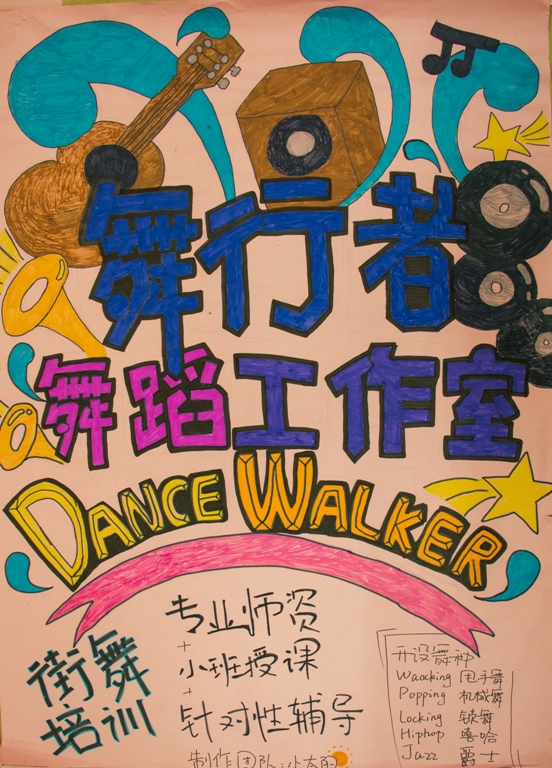 舞行者
舞蹈工作室
DANCE WALKER
专业师资
+
小班授课
+
针对性辅导
街舞
培训
开设舞种
Waocking 甩手舞
Popping 机械舞
Locking 锁舞
Hiphop 嘻哈
Jazz 爵士
制作团队:小太阳